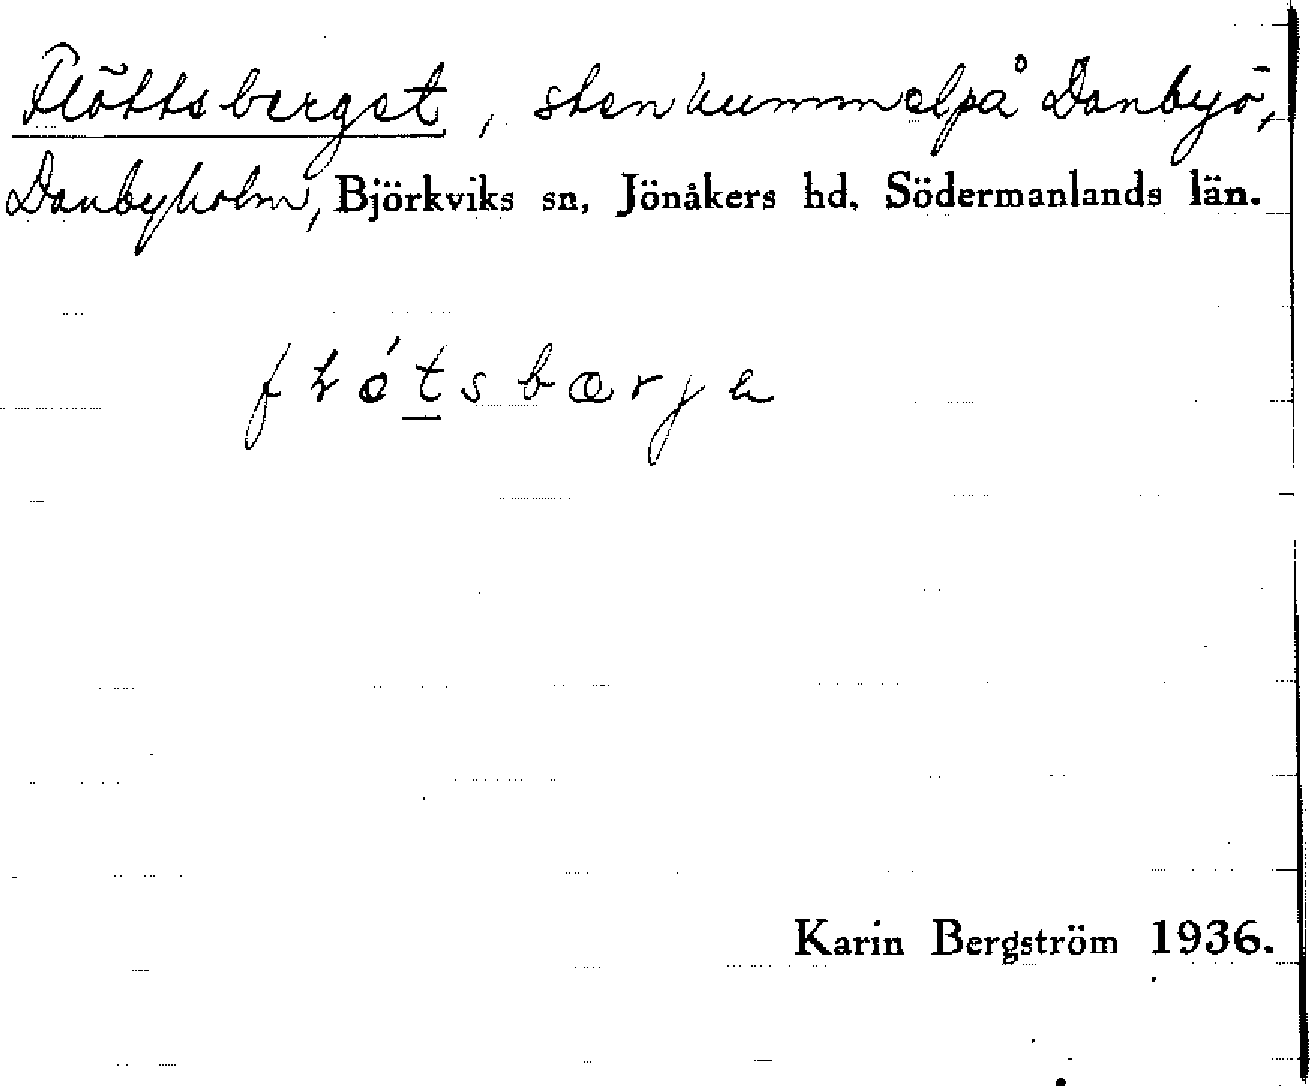 Flöttsberget, stenkummel på Danbyö,
Danbyholm, Björkviks sn, Jönåkers hd. Södermanlands län.
Karin Bergström 1936.